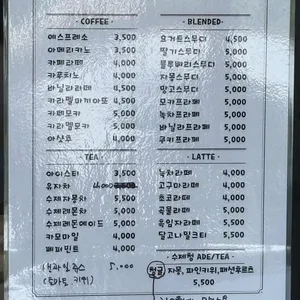 · COFFEE ·
에스프레소 3,500
아메리카노 3,500
카페라떼 4,000
카푸치노 4,000
바닐라라떼 4,500
카라멜마키아또 4,500
카페모카 5,000
카라멜모카 5,000
아샷코 4,000
· TEA ·
아이스티 3,500
유자차 4,000
수제자몽차 5,500
수제레몬차 5,000
수제레몬에이드 5,000
카모마일 4,000
페퍼민트 4,000
생과일쥬스 5,000
(토마토 키위)
· BLENDED ·
요거트스무디 4,500
딸기스무디 5,000
블루베리스무디 5,000
자몽스무디 5,000
망고스무디 5,000
모카프라페 5,000
녹차프라페 5,000
바닐라프라페 5,000
쿠키프라페 5,000
· LATTE ·
녹차라떼 4,000
고구마라떼 4,000
초코라떼 4,000
곡물라떼 5,000
흑임자라떼 5,500
달고나밀크티 5,500
· 수제청 ADE/TEA ·
자몽, 파인키위, 패션후르츠
5,500